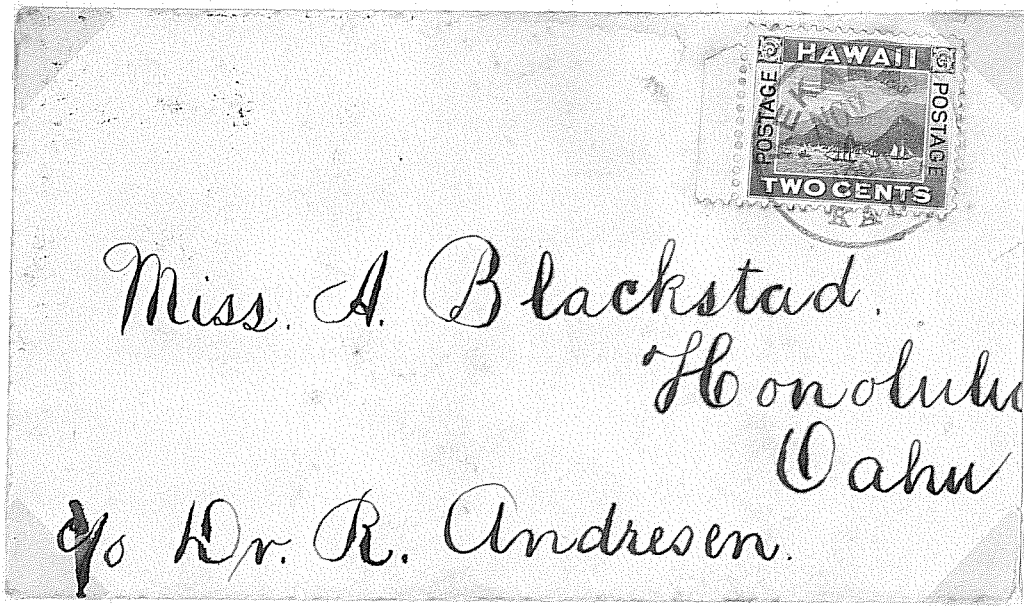 HAWAII
POSTAGE
POSTAGE
TWO CENTS
Miss. A. Blackstad.
Honolulu
Oahu
c/o Dr. R. Andresen.